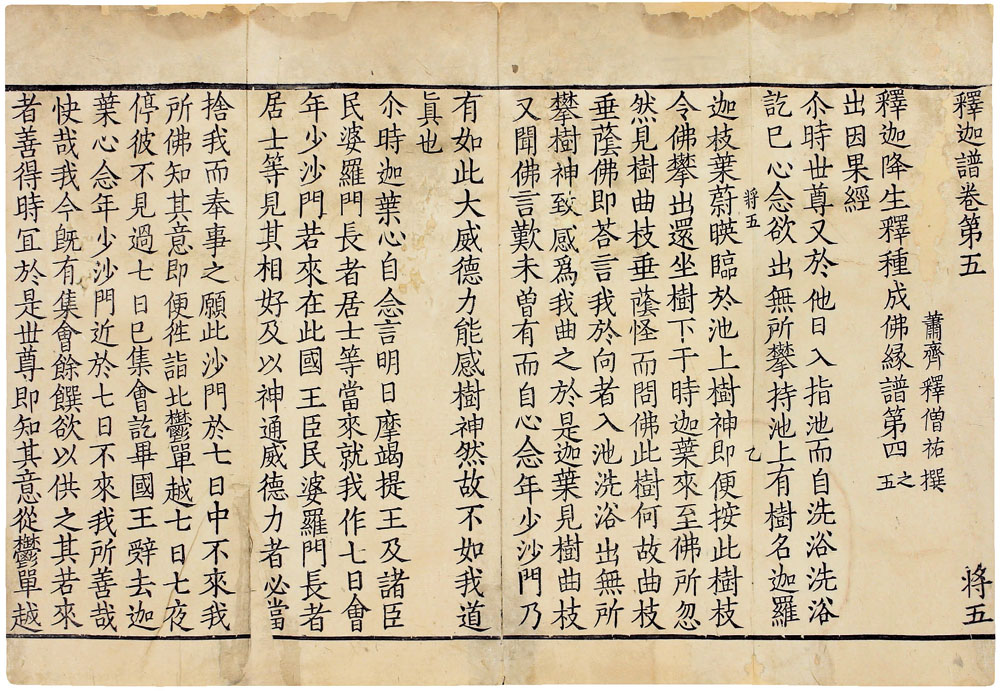 釋迦譜卷第五 将五
蕭齊釋僧祐撰
釋迦降生釋種成佛緣譜第四之五
出因果經
尒時世尊又於他日入指池而自洗浴洗浴
訖已心念欲出無所攀持池上有樹名迦羅
将五 乙
迦枝葉蔚暎臨於池上樹神即便按此樹枝
令佛攀出還坐樹下于時迦葉來至佛所忽
然見樹曲枝垂蔭怪而問佛此樹何故曲枝
垂蔭佛即荅言我於向者入池洗浴出無所
攀樹神致感爲我曲之於是迦葉見樹曲枝
又聞佛言歎未曽有而自心念年少沙門乃
有如此大威德力能感樹神然故不如我道
真也
尒時迦葉心自念言明日摩竭提王及諸臣
民婆羅門長者居士等當來就我作七日會
年少沙門若來在此國王臣民婆羅門長者
居士等見其相好及以神通威德力者必當
捨我而奉事之願此沙門於七日中不來我
所佛知其意即便徃詣北鬱單越七日七夜
停彼不見過七日已集會訖畢國王辤去迦
葉心念年少沙門近於七日不來我所善哉
快哉我今旣有集會餘饌欲以供之其若來
者善得時冝於是世尊即知其意從鬱單越